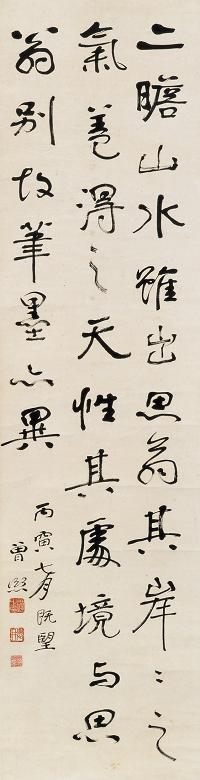 二瞻山水雖出思翁其岸岸之
氣蓋得之天性其處境与思
翁别故筆墨亦異
丙寅七月既望
曾熙